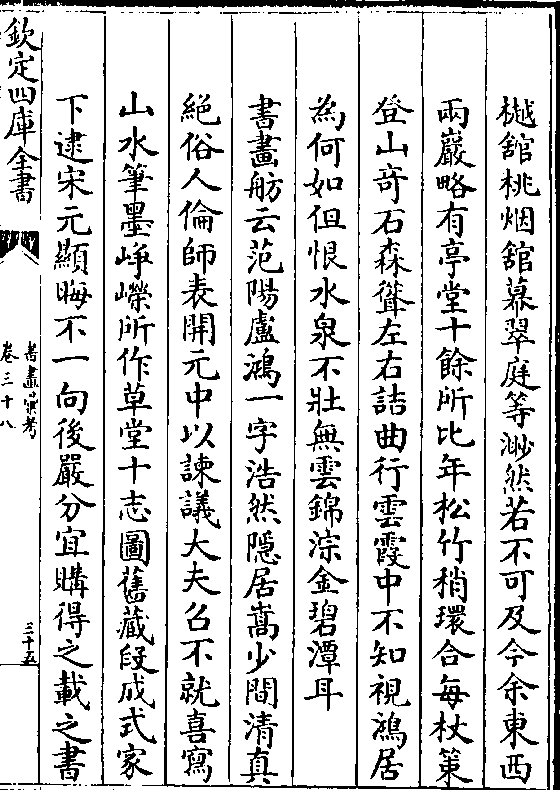 樾舘桃烟舘羃翠庭等渺然若不可及今余東西
兩巖略有亭堂十餘所比年松竹稍環合每杖策
登山竒石森聳左右詰曲行雲霞中不知視鴻居
為何如但恨水泉不壯無雲錦淙金碧潭耳
書畫舫云范陽盧鴻一字浩然隱居嵩少間清真
絕俗人倫師表開元中以諫議大夫召不就喜寫
山水筆墨崢嶸所作草堂十志圖舊藏段成式家
下逮宋元顯晦不一向後嚴分宜購得之載之書
欽定四庫全書
書畫彙考
卷三十八
三十五